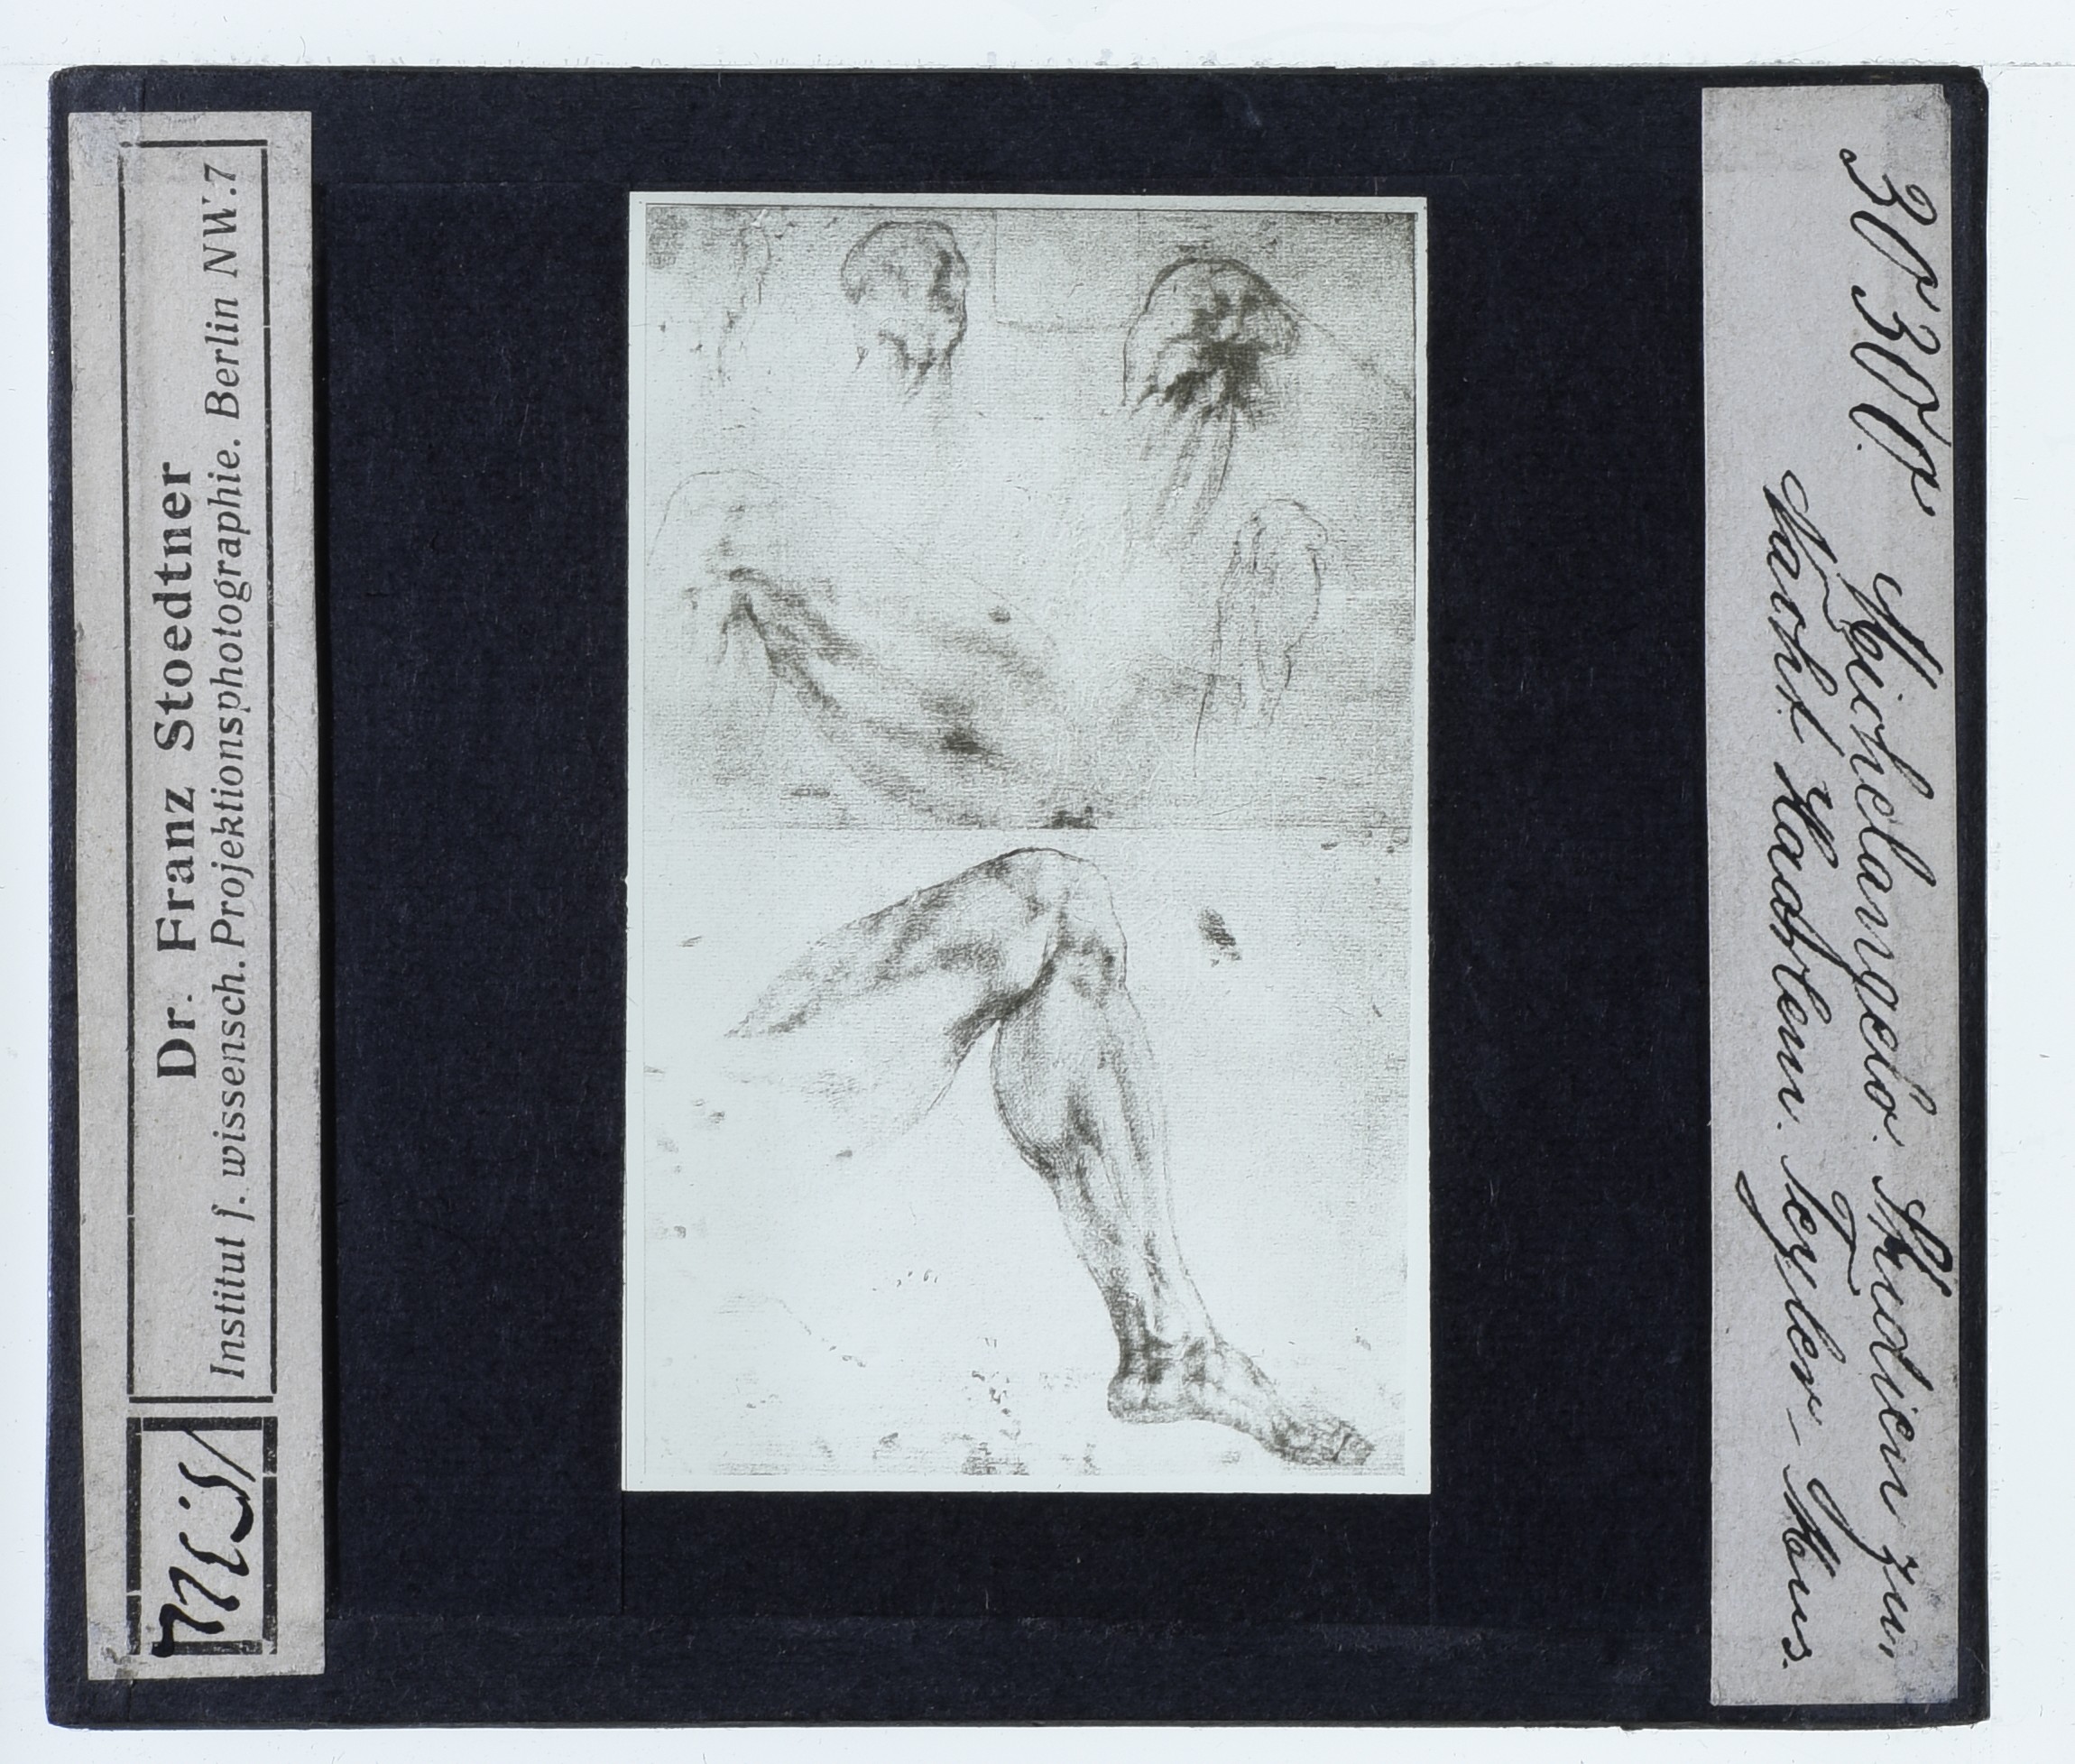 Dr. Franz Stoedtner
Institut f. wissensch. Projektionsphotographie. Berlin NW.7
30300. Michelangelo. Studien zur
Nacht. Haarlem. Teyler-Mus.